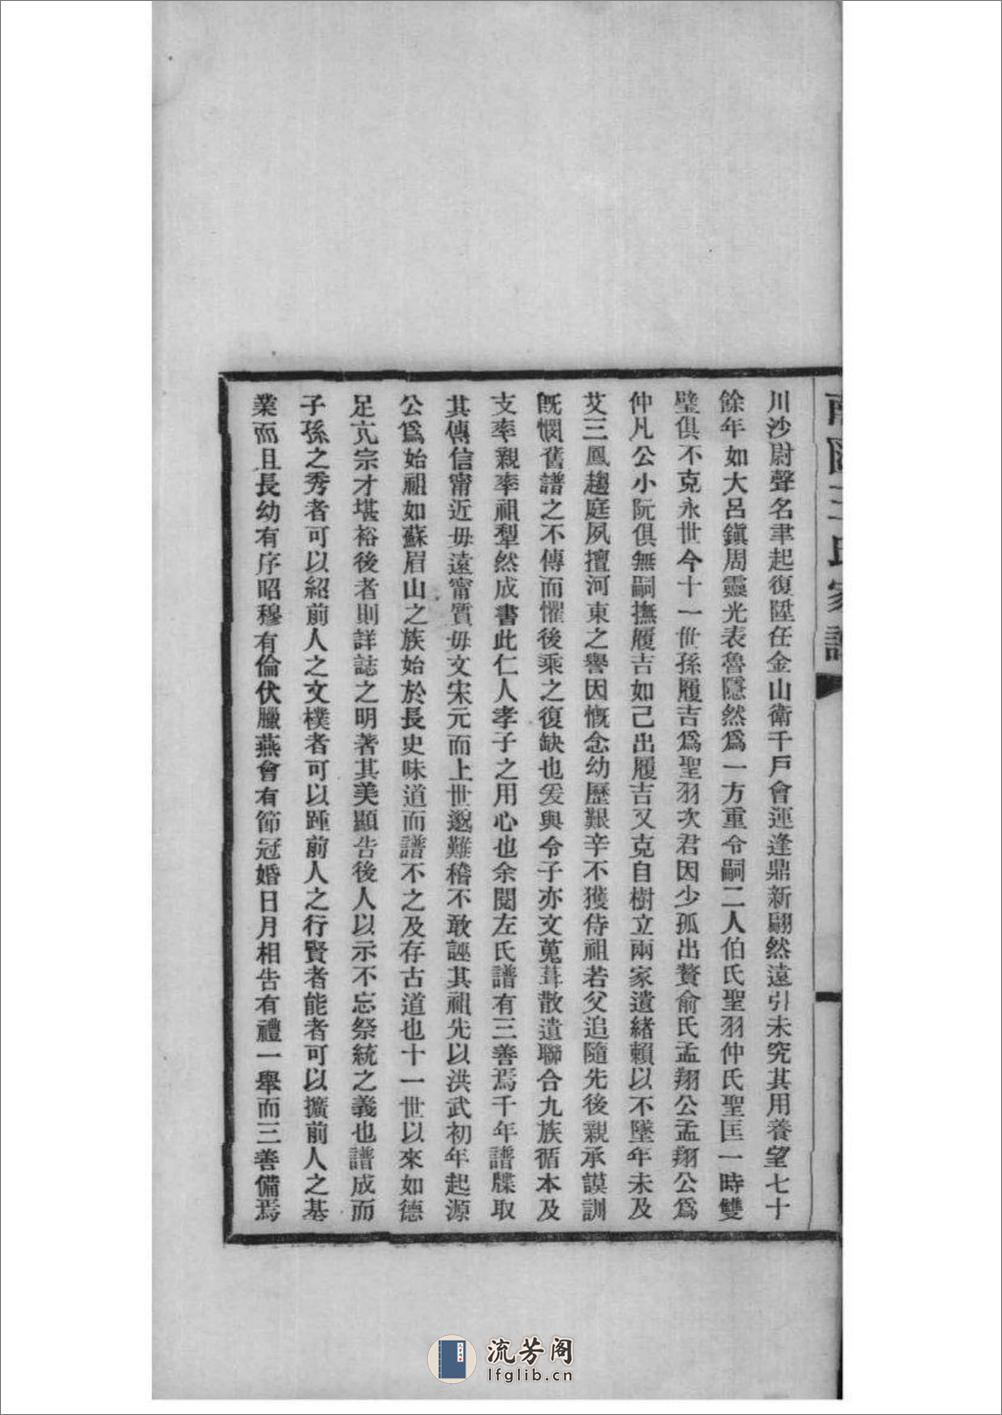 川沙尉聲名聿起復陞任金山衛千戶會運逢鼎新翩然遠引未究其用養望七十
餘年如大呂鎮周靈光表魯隱然爲一方重令嗣二人伯氏聖羽仲氏聖匡一時雙
璧俱不克永世今十一世孫履吉爲聖羽次君因少孤出贅俞氏孟翔公孟翔公爲
仲凡公小阮俱無嗣撫履吉如己出履吉又克自樹立兩家遺緒賴以不墜年未及
艾三鳳趨庭夙擅河東之譽因慨念幼歷艱辛不獲侍祖若父追隨先後親承謨訓
旣憫舊譜之不傳而懼後乘之復缺也爰與令子亦文蒐葺散遺聯合九族循本及
支率親率祖犁然成書此仁人孝子之用心也余閱左氏譜有三善焉千年譜牒取
其傳信甯近毋遠甯質毋文宋元而上世邈難稽不敢誣其祖先以洪武初年起源
公爲始祖如蘇眉山之族始於長史味道而譜不之及存古道也十一世以來如德
足亢宗才堪裕後者則詳誌之明著其美顯告後人以示不忘祭統之義也譜成而
子孫之秀者可以紹前人之文樸者可以踵前人之行賢者能者可以擴前人之基
業而且長幼有序昭穆有倫伏臘燕會有節冠婚日月相告有禮一舉而三善備焉
流芳阁
lfglib.cn